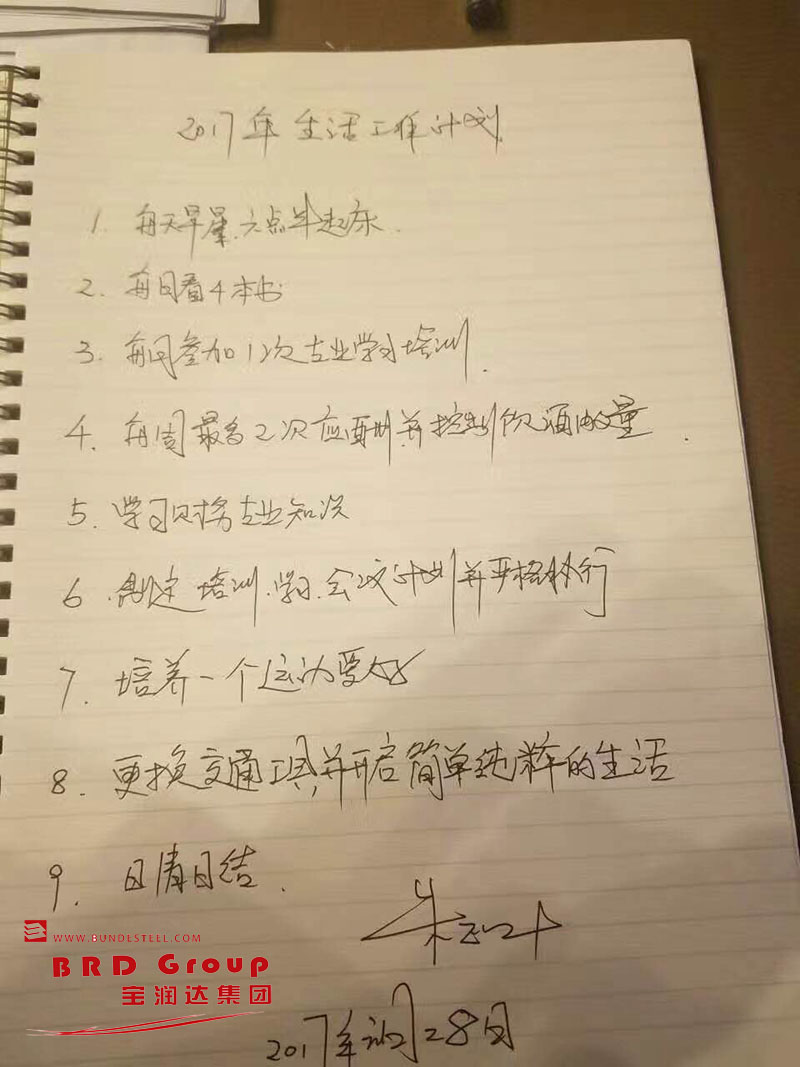 2017年生活工作计划
1. 每天早晨六点半起床.
2. 每月看4本书
3. 每周参加1次专业学习培训.
4. 每周最多2次应酬并控制饮酒的量.
5. 学习财务专业知识
6. 制定培训.学习.会议计划并严格执行
7. 培养一个运动爱好
8. 更换交通工具,并开启简单纯粹的生活
9. 日清日结.
朱
WWW.BUNDESTEEL.COM
BRD Group
宝润达集团
2017年 月28日